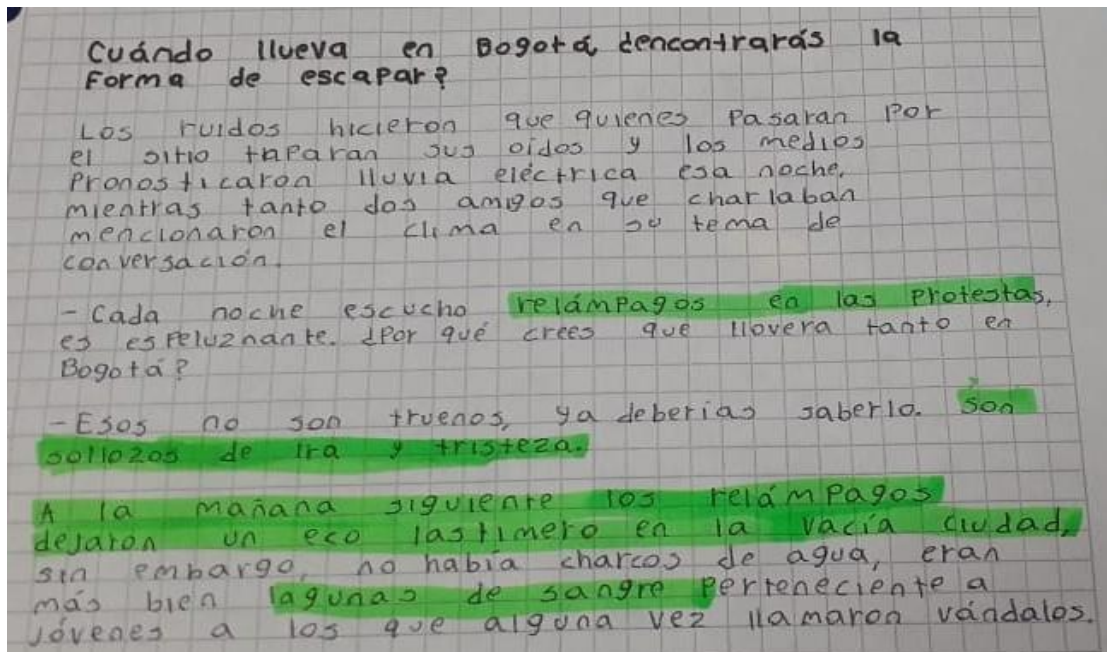 Cuándo llueva en Bogotá ¿encontrarás la
forma de escapar?
Los ruidos hicieron que quienes pasaran por
el sitio taparan sus oídos y los medios
pronosticaron lluvia eléctrica esa noche,
mientras tanto dos amigos que charlaban
mencionaron el clima en su tema de
conversación.
- Cada noche escucho relámpagos en las protestas,
es espeluznante. ¿Por qué crees que llovera tanto en
Bogotá?
- Esos no son truenos, ya deberias saberlo. Son
sollozos de ira y tristeza.
A la mañana siguiente los relámpagos
dejaron un eco lastimero en la vacía ciudad,
sin embargo, no había charcos de agua, eran
más bien lagunas de sangre perteneciente a
jóvenes a los que alguna vez llamaron vándalos.